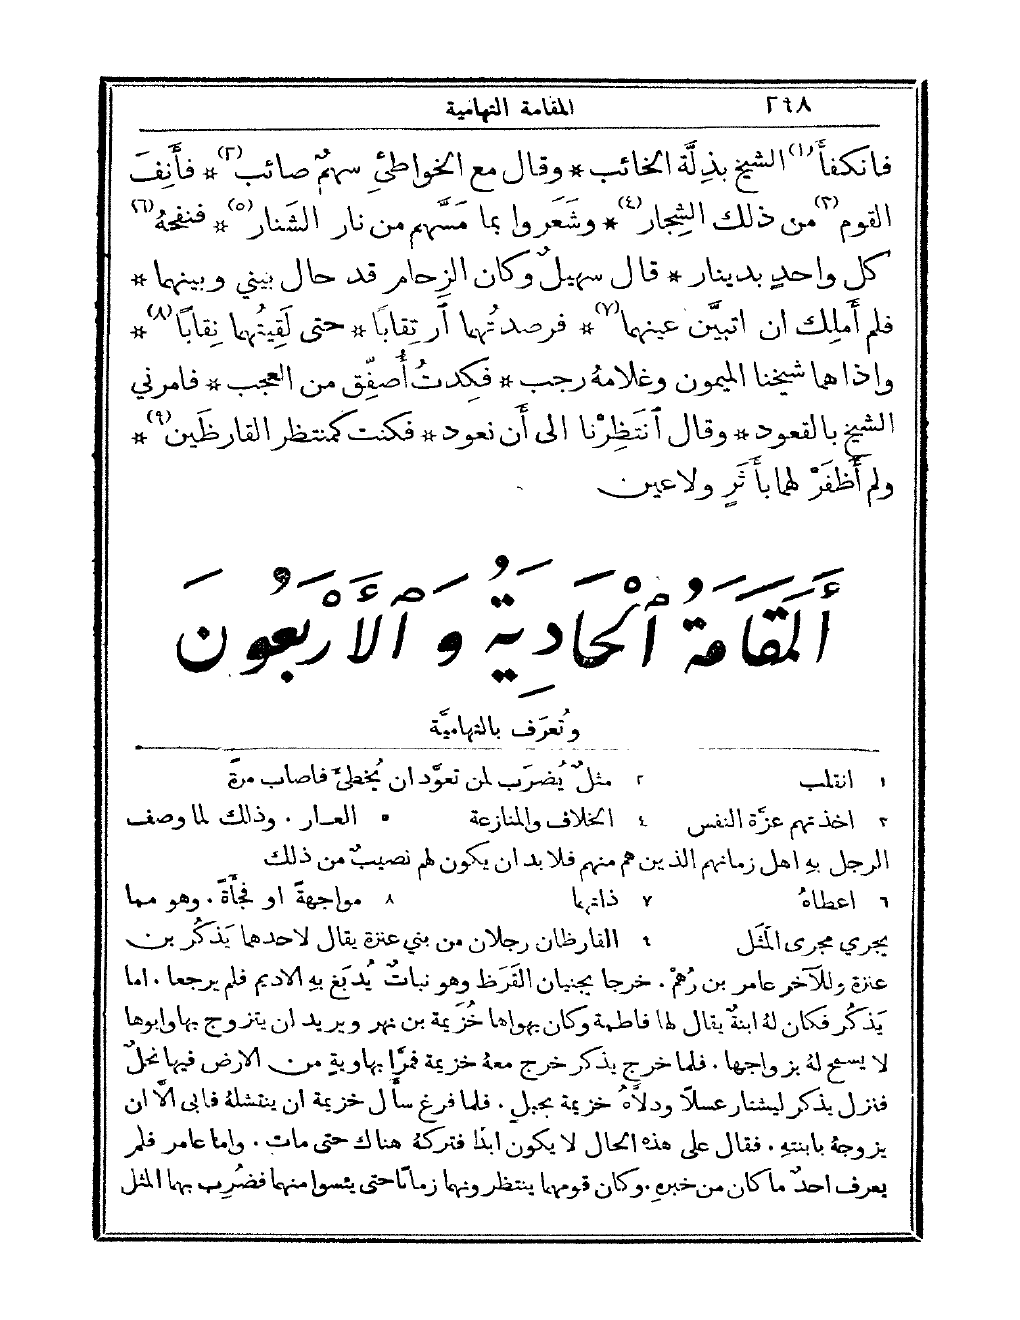 ٢٩٨ المقامة التهامية
فانكفأَ(١) الشيخ بذِلَّة الخائب * وقال مع الخواطئِ سهمٌ صائب(٢) * فأَنِفَ
القوم(٣) من ذلك الشِجار(٤) * وشَعَروا بما مَسَّهم من نار الشَنار(٥) * فنفحهُ(٦)
كل واحدٍ بدينار * قال سهيلٌ وكان الزِحام قد حال بيني وبينهما *
فلم أَملِك ان اتبيَّن عينهما(٧) * فرصدتُهما ٱرتِقابًا * حتى لَقِيتُهما نِقابًا(٨) *
واذا هما شيخنا الميمون وغلامهُ رجب * فكِدتُ أُصفِّق من العجب * فامرني
الشيخ بالقعود * وقال ٱنتَظِرْنا الى أَن نعود * فكنت كمنتظر القارظَين(٩) *
ولم أَظفَرْ لهما بأَثَرٍ ولا عين
أَلمَقَامَةُ ٱلْحَادِيَةُ وَٱلأَرْبَعُونَ
وتُعرَف بالتهاميَّة
١ انقلب ٢ مثلٌ يُضرَب لمن تعوَّد ان يُخطئَ فاصاب مرةً
٣ اخذتهم عزَّة النفس ٤ الخلاف والمنازعة ٥ العـار . وذلك لما وصف
الرجل بهِ اهل زمانهم الذين هم منهم فلا بد ان يكون لهم نصيبٌ من ذلك
٦ اعطاهُ ٧ ذاتهما ٨ مواجهةً او فجأَةً . وهو مما
يجري مجرى المَثَل ٩ القارظان رجلان من بني عنزة يقال لاحدهما يَذكُر بن
عنزة وللآخر عامر بن رُهْم . خرجا يجنيان القَرَظ وهو نباتٌ يُدبَغ بهِ الاديم فلم يرجعا . اما
يَذكُر فكان لهُ ابنةٌ يقال لها فاطمة وكان يهواها خُزَيمة بن نهر ويريد ان يتزوج بها وابوها
لا يسمح لهُ بزواجها . فلما خرج يذكر خرج معهُ خزيمة فمرَّا بهاويةٍ من الارض فيها نحلٌ
فنزل يذكر ليشتار عسلاً ودلاَّهُ خزيمة بحبلٍ . فلما فرغ سأَل خزيمة ان ينتشلهُ فابى الاَّ ان
يزوجهُ بابنتهِ . فقال على هذه الحال لا يكون ابدًا فتركهُ هناك حتى مات . واما عامر فلم
يعرف احدٌ ما كان من خبرهِ . وكان قومهما ينتظرونهما زمانًا حتى يئسوا منهما فضُرِب بهما المثل